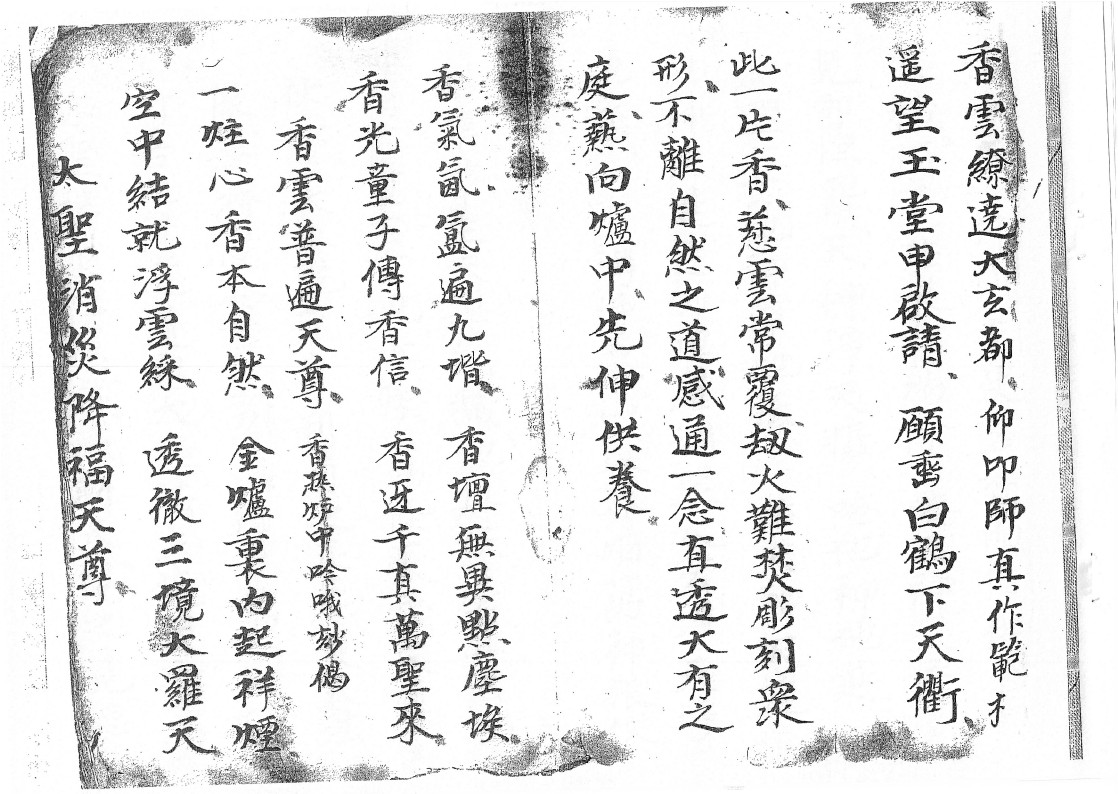 香雲繚遶大玄都 仰叩師真作範才
遥望玉堂申啟請 願垂白鶴下天衢
此一片香慈雲常覆劫火難焚彫刻衆
形不離自然之道感通一念直透大有之
庭爇向爐中先伸供養
香氣氤氳遍九堦 香壇無異點塵埃
香光童子傳香信 香迓千真萬聖來
香雲普遍天尊 香爇炉中吟哦玅偈
一炷心香本自然 金爐裏内起祥煙
空中結就浮雲綵 透徹三境大羅天
太聖消災降福天尊